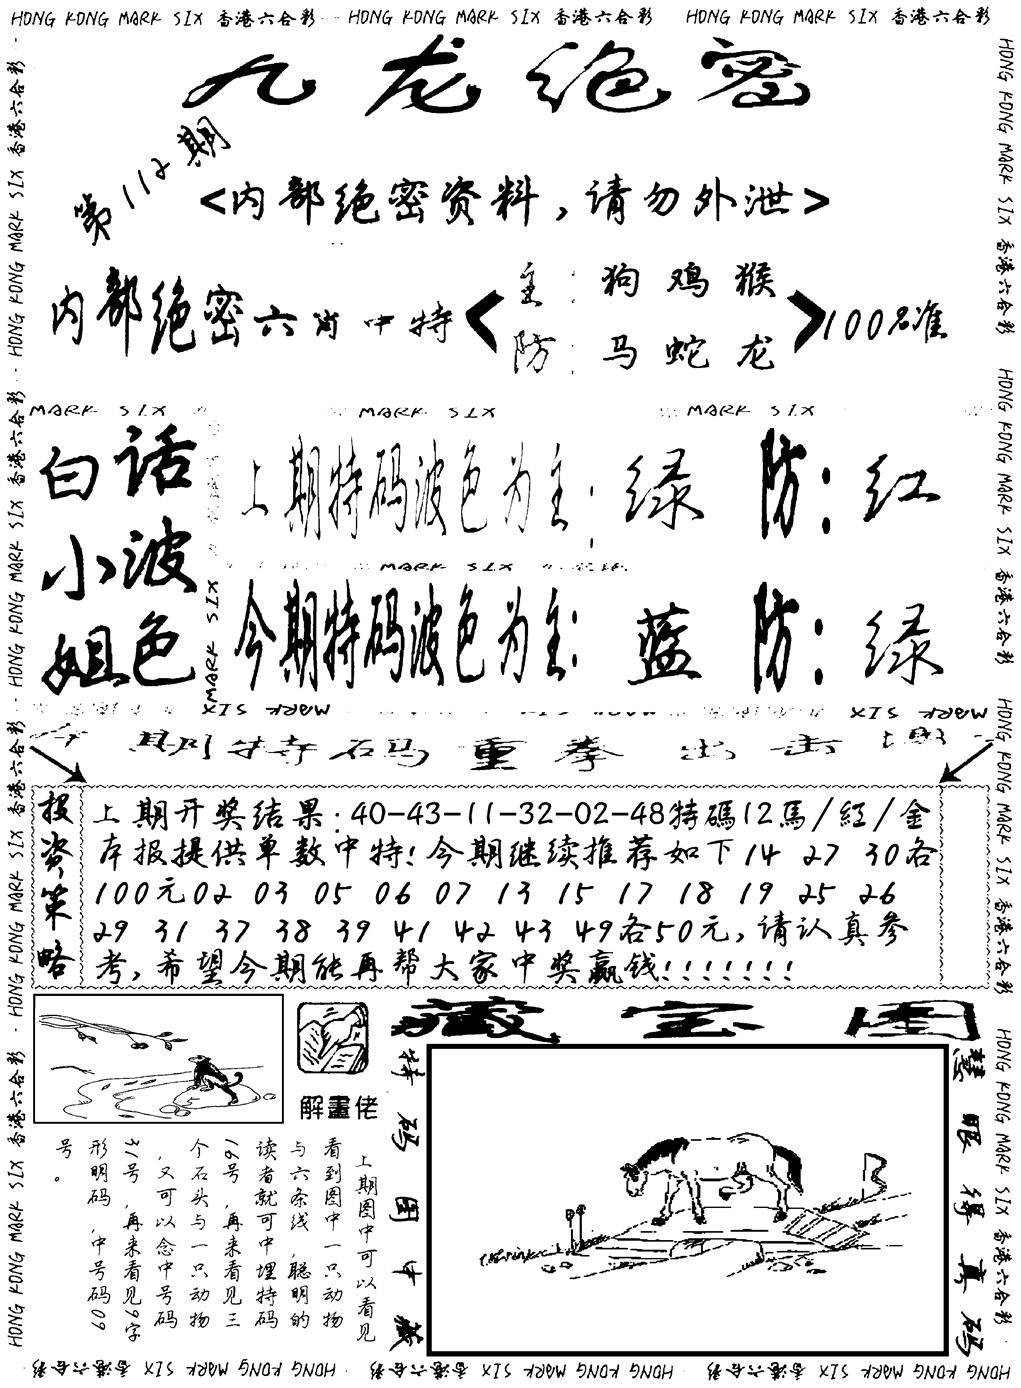 HONG KONG MARK SIX 香港六合彩 HONG KONG MARK SIX 香港六合彩 HONG KONG MARK SIX 香港六合彩
九龙绝密
第112期
<内部绝密资料，请勿外泄>
内部绝密六肖中特
主：狗鸡猴
防：马蛇龙
100%准
MARK SIX MARK SIX MARK SIX
白话
小波
姐色
上期特码波色为主：绿 防：红
MARK SIX
MARK SIX
今期特码波色为主：蓝 防：绿
MARK SIX MARK SIX MARK SIX
期特码重拳出击
投资策略
上期开奖结果：40-43-11-32-02-48特碼12馬/紅/金
本报提供单数中特！今期继续推荐如下14 27 30各
100元02 03 05 06 07 13 15 17 18 19 25 26
29 31 37 38 39 41 42 43 49各50元，请认真参
考，希望今期能再帮大家中奖赢钱！！！！！！！
解畫佬
上期图中可以看见
看到图中一只动物
与六条线，聪明的
读者就可中埋特码
16号，再来看见三
个石头与一只动物
，又可以念中号码
31号，再来看见9字
形明码，中号码09
号。
藏宝图
特码图中藏
慧眼得真码
HONG KONG MARK SIX 香港六合彩 HONG KONG MARK SIX 香港六合彩 HONG KONG MARK SIX 香港六合彩 HONG KONG MARK SIX 香港六合彩
HONG KONG MARK SIX 香港六合彩 HONG KONG MARK SIX 香港六合彩 HONG KONG MARK SIX 香港六合彩 HONG KONG MARK SIX 香港六合彩
HONG KONG MARK SIX 香港六合彩 HONG KONG MARK SIX 香港六合彩 HONG KONG MARK SIX 香港六合彩